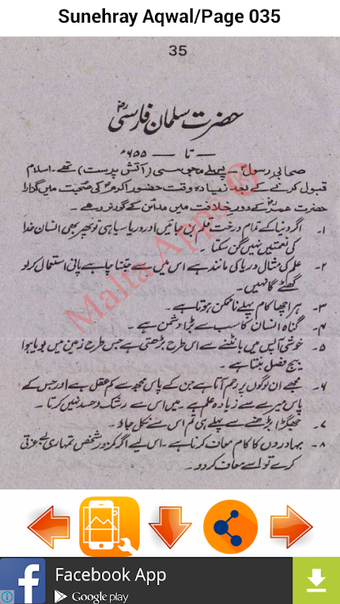 Sunehray Aqwal/Page 035
35
حضرت سلمان فارسیؓ
— تا — ۶۵۵ء
صحابی رسولؐ پہلے مجوسی (آتش پرست) تھے۔ اسلام
قبول کرنے کے بعد زیادہ وقت حضور اکرمؐ کی صحبت میں گذارا
حضرت عمرؓ کے دورِ خلافت میں مدائن کے گورنر رہے۔
۱۔ اگر دنیا کے تمام درخت قلم بن جائیں اور دریا سیاہی تو پھر بھی انسان خدا
کی نعمتیں نہیں گن سکتا۔
۲۔ علم کی مثال دریا کی مانند ہے اس میں سے جتنا چاہے پانی استعمال کر لو
گھٹے گا نہیں۔
۳۔ ہر اچھا کام پہلے ناممکن ہوتا ہے۔
۴۔ گناہ انسان کا سب سے بڑا دشمن ہے۔
۵۔ خوشی آپس میں بانٹنے سے اس طرح بڑھتی ہے جس طرح زمین میں بویا ہوا
بیج فصل بنتا ہے۔
۶۔ مجھے ان لوگوں پر رحم آتا ہے جن کے پاس مجھ سے کم عقل ہے اور جس کے
پاس میرے سے زیادہ علم ہے۔ میں اس سے رشک و حسد نہیں کرتا۔
۷۔ جھگڑا بڑھنے سے پہلے ہی تم اس سے نکل جاؤ۔
۸۔ بہادروں کا کام معاف کرنا ہے۔ اس لیے اگر کمزور شخص تمہاری بے عزتی
کرے تو اسے معاف کر دو۔
Malta Apps ®
Facebook App
Google play